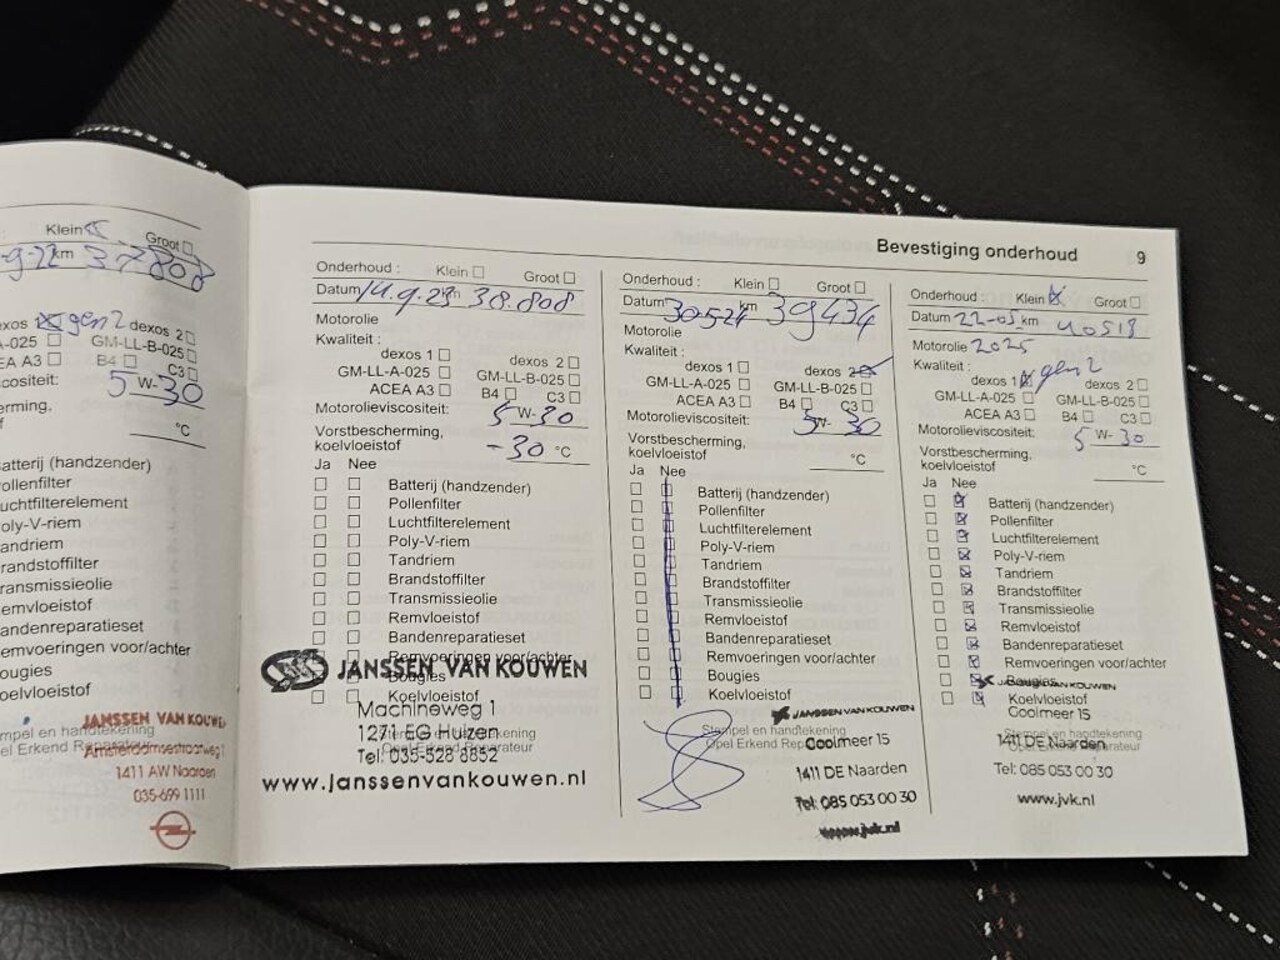 Klein Groot
-9-22 km 37808
exos gen2 dexos 2
A-025 GM-LL-B-025
EA A3 B4 C3
scositeit: 5 W-30
erming,
f °C
atterij (handzender)
ollenfilter
uchtfilterelement
oly-V-riem
andriem
randstoffilter
ransmissieolie
emvloeistof
andenreparatieset
emvoeringen voor/achter
ougies
oelvloeistof
JANSSEN VAN KOUWE
mpel en handtekening
el Erkend Reparateur
Amsterdamsestraatweg 1
1411 AW Naarden
035-699 1111
Bevestiging onderhoud 9
Onderhoud : Klein Groot
Datum 14.9.23 km 38.808
Motorolie
Kwaliteit :
dexos 1 dexos 2
GM-LL-A-025 GM-LL-B-025
ACEA A3 B4 C3
Motorolieviscositeit: 5 W-30
Vorstbescherming,
koelvloeistof -30 °C
Ja Nee
Batterij (handzender)
Pollenfilter
Luchtfilterelement
Poly-V-riem
Tandriem
Brandstoffilter
Transmissieolie
Remvloeistof
Bandenreparatieset
Remvoeringen voor/achter
Bougies
Koelvloeistof
JANSSEN VAN KOUWEN
Machineweg 1
1271 EG Huizen
Opel Erkend Reparateur
Tel: 035-528 8852
www.janssenvankouwen.nl
Onderhoud : Klein Groot
Datum 30-5-24 km 39434
Motorolie
Kwaliteit :
dexos 1 dexos 2
GM-LL-A-025 GM-LL-B-025
ACEA A3 B4 C3
Motorolieviscositeit: 5 W- 30
Vorstbescherming,
koelvloeistof °C
Ja Nee
Batterij (handzender)
Pollenfilter
Luchtfilterelement
Poly-V-riem
Tandriem
Brandstoffilter
Transmissieolie
Remvloeistof
Bandenreparatieset
Remvoeringen voor/achter
Bougies
Koelvloeistof
JANSSEN VAN KOUWEN
Stempel en handtekening
Opel Erkend Reparateur
Gooimeer 15
1411 DE Naarden
Tel: 085 053 00 30
www.jvk.nl
Onderhoud : Klein Groot
Datum 22-05 km 40518
Motorolie 2025
Kwaliteit :
dexos 1 gen2 dexos 2
GM-LL-A-025 GM-LL-B-025
ACEA A3 B4 C3
Motorolieviscositeit: 5 W- 30
Vorstbescherming,
koelvloeistof °C
Ja Nee
Batterij (handzender)
Pollenfilter
Luchtfilterelement
Poly-V-riem
Tandriem
Brandstoffilter
Transmissieolie
Remvloeistof
Bandenreparatieset
Remvoeringen voor/achter
Bougies
JANSSEN VAN KOUWEN
Koelvloeistof
Gooimeer 15
Stempel en handtekening
Opel Erkend Reparateur
1411 DE Naarden
Tel: 085 053 00 30
www.jvk.nl